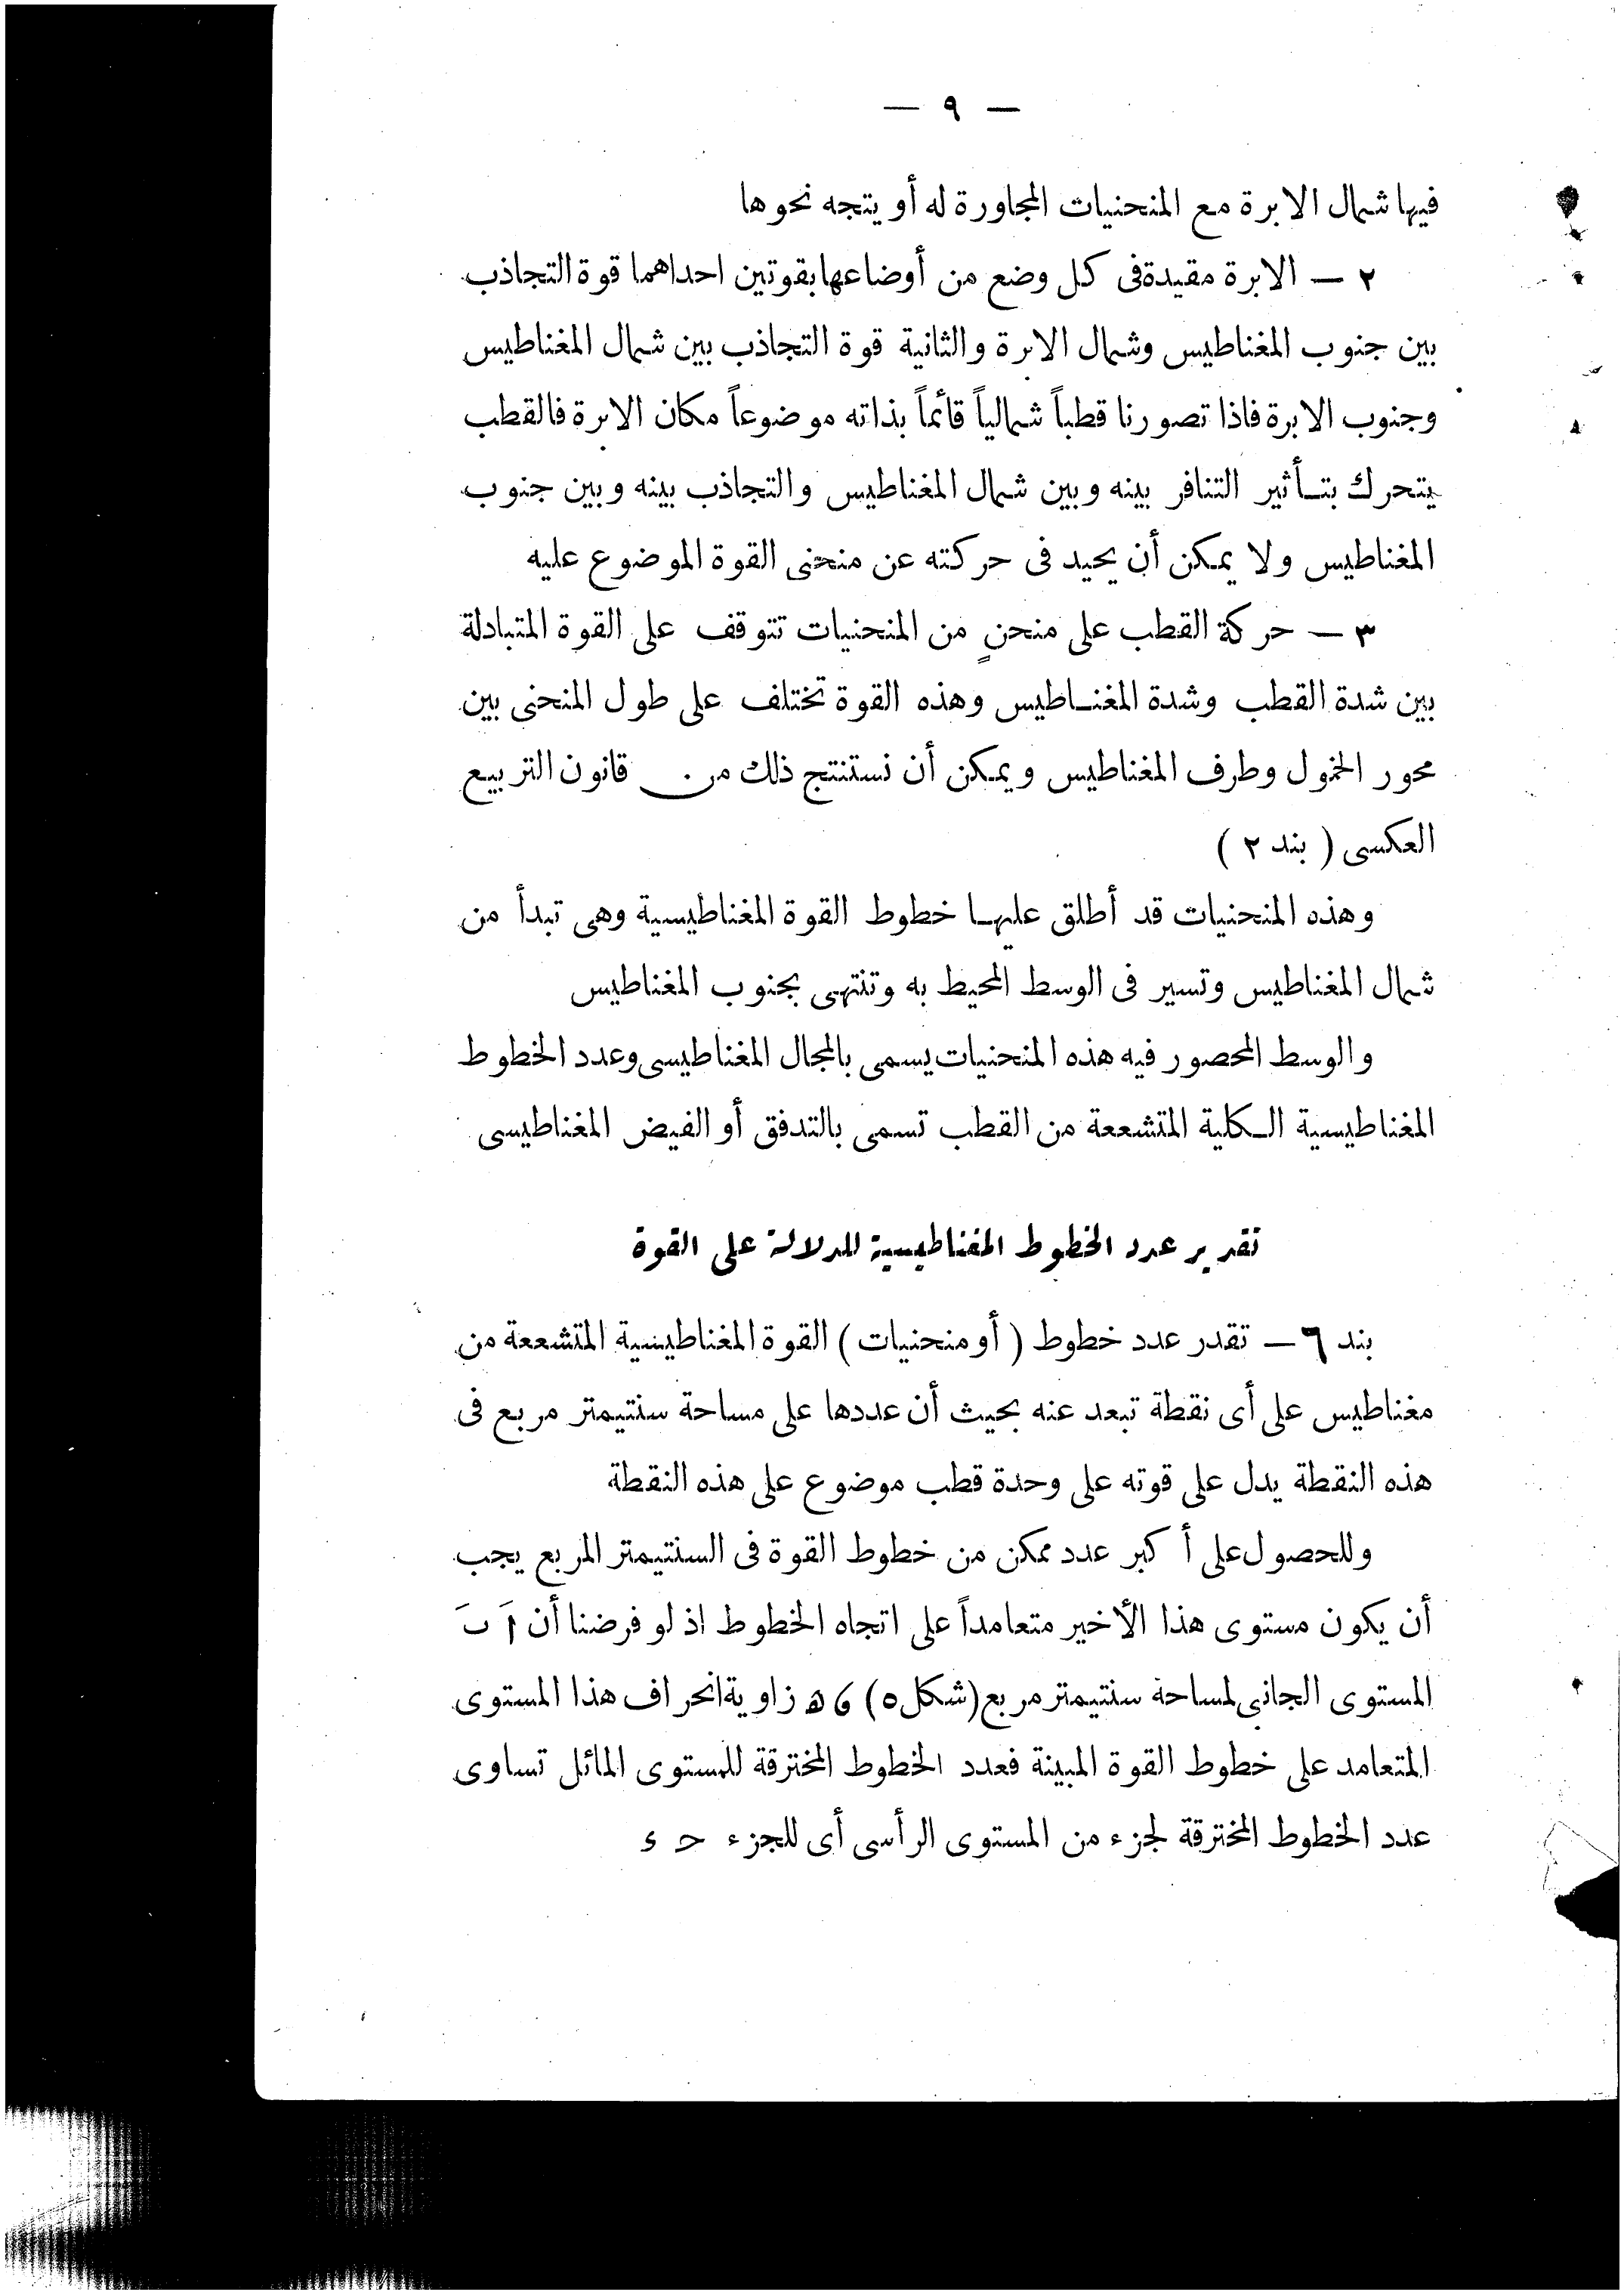 — ٩ —
فيها شمال الابرة مع المنحنيات المجاورة له أو يتجه نحوها
٢ — الابرة مقيدة فى كل وضع من أوضاعها بقوتين احداهما قوة التجاذب
بين جنوب المغناطيس وشمال الابرة والثانية قوة التجاذب بين شمال المغناطيس
وجنوب الابرة فاذا تصورنا قطباً شمالياً قائماً بذاته موضوعاً مكان الابرة فالقطب
يتحرك بتأثير التنافر بينه وبين شمال المغناطيس والتجاذب بينه وبين جنوب
المغناطيس ولا يمكن أن يحيد فى حركته عن منحنى القوة الموضوع عليه
٣ — حركة القطب على منحنٍ من المنحنيات تتوقف على القوة المتبادلة
بين شدة القطب وشدة المغناطيس وهذه القوة تختلف على طول المنحنى بين
محور الخمول وطرف المغناطيس ويمكن أن نستنتج ذلك من قانون التربيع
العكسى ( بند ٢ )
وهذه المنحنيات قد أطلق عليها خطوط القوة المغناطيسية وهى تبدأ من
شمال المغناطيس وتسير فى الوسط المحيط به وتنتهى بجنوب المغناطيس
والوسط المحصور فيه هذه المنحنيات يسمى بالمجال المغناطيسى وعدد الخطوط
المغناطيسية الكلية المتشععة من القطب تسمى بالتدفق أو الفيض المغناطيسى
تقدير عدد الخطوط المغناطيسية للدلالة على القوة
بند ٦ — تقدر عدد خطوط ( أو منحنيات ) القوة المغناطيسية المتشععة من
مغناطيس على أى نقطة تبعد عنه بحيث أن عددها على مساحة سنتيمتر مربع فى
هذه النقطة يدل على قوته على وحدة قطب موضوع على هذه النقطة
وللحصول على أكبر عدد ممكن من خطوط القوة فى السنتيمتر المربع يجب
أن يكون مستوى هذا الأخير متعامداً على اتجاه الخطوط اذ لو فرضنا أن اَ بَ
المستوى الجانبى لمساحة سنتيمتر مربع (شكل ٥) و ه زاوية انحراف هذا المستوى
المتعامد على خطوط القوة المبينة فعدد الخطوط المخترقة للمستوى المائل تساوى
عدد الخطوط المخترقة لجزء من المستوى الرأسى أى للجزء حـ ء